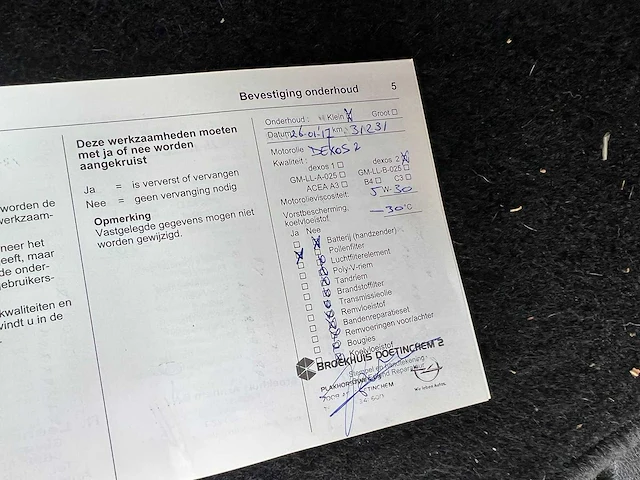 Bevestiging onderhoud 5
n worden de
werkzaam-
neer het
eeft, maar
de onder-
ebruikers-
kwaliteiten en
vindt u in de
Deze werkzaamheden moeten
met ja of nee worden
aangekruist
Ja = is ververst of vervangen
Nee = geen vervanging nodig
Opmerking
Vastgelegde gegevens mogen niet
worden gewijzigd.
Onderhoud: Klein Groot
Datum 26-01-17 km. 31231
Motorolie DEXOS 2
Kwaliteit:
dexos 1 dexos 2
GM-LL-A-025 GM-LL-B-025
ACEA A3 B4 C3
Motorolieviscositeit: 5W-30
Vorstbescherming,
koelvloeistof -30°C
Ja Nee
Batterij (handzender)
Pollenfilter
Luchtfilterelement
Poly-V-riem
Tandriem
Brandstoffilter
Transmissieolie
Remvloeistof
Bandenreparatieset
Remvoeringen voor/achter
Bougies
Koelvloeistof
BROEKHUIS DOETINCHEM 2
Stempel en handtekening
DOETINCHEM
Wir leben Autos.